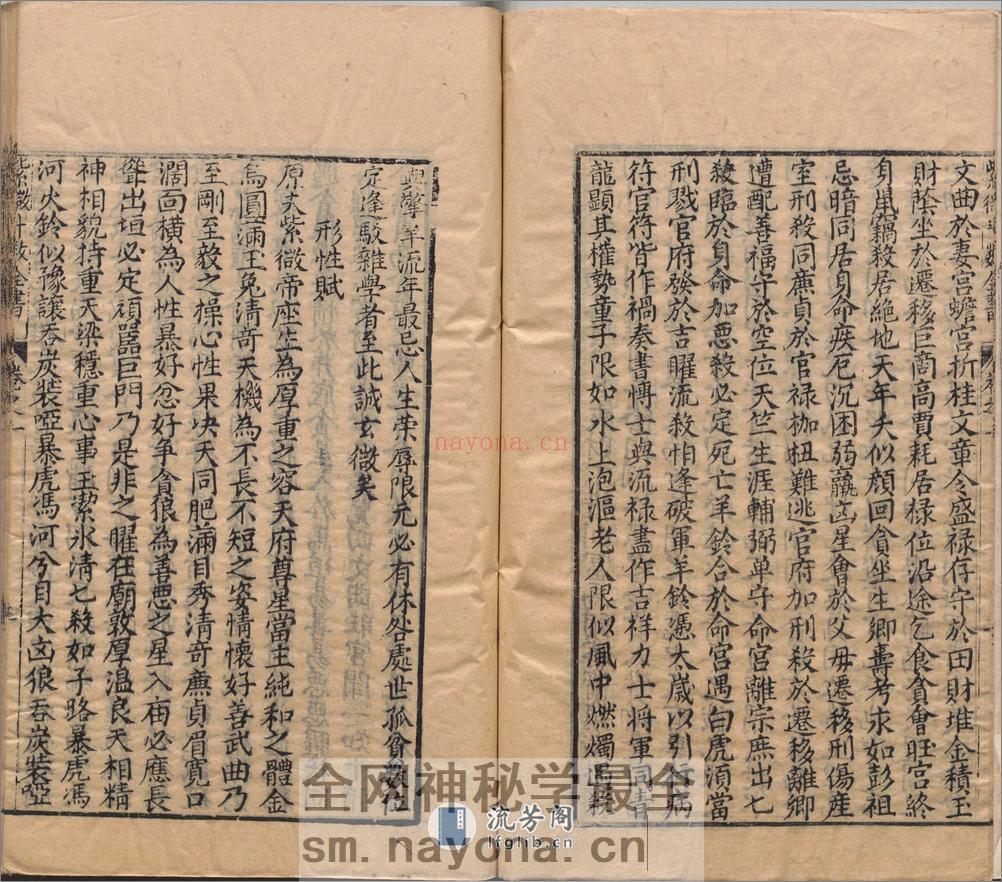 文曲於妻宮蟾宮折桂文章令盛祿存守於田財堆金積玉
財蔭坐於遷移巨商高賈耗居祿位沿途乞食貪會旺宮終
身鼠竊殺居絕地天年夭似顏回貪坐生鄉壽考求如彭祖
忌暗同居身命疾厄沉困弱羸凶星會於父母遷移刑傷產
室刑殺同廉貞於官祿枷杻難逃官府加刑殺於遷移離鄉
遭配善福守於空位天竺生涯輔弼單守命宮離宗庶出七
殺臨於身命加惡殺必定死亡羊鈴合於命宮遇白虎須當
刑戮官府發於吉曜流殺怕逢破軍羊鈴憑太歲以引行病
符官符皆作禍奏書博士與流祿盡作吉祥力士將軍同青
龍顯其權勢童子限如水上泡漚老人限似風中燃燭遇殺
與擎羊流年最忌人生荣辱限元必有休咎處世孤貧數
定逢駁雜學者至此誠玄微矣
形性賦
原夫紫微帝座生為厚重之容天府尊星當主純和之體金
烏圓滿玉兔清奇天機為不長不短之姿情懷好善武曲乃
至剛至毅之操心性果決天同肥滿目秀清奇廉貞眉寬口
濶面橫為人性暴好忿好爭貪狼為善惡之星入庙必應長
聳出垣必定頑嚚巨門乃是非之曜在廟敦厚溫良天相精
神相貌持重天梁穩重心事玉潔氷清七殺如子路暴虎馮
河火鈴似豫讓吞炭裝啞暴虎馮河兮目大凶狠吞炭裝啞
紫微斗数全書
nayona.cn
全网神秘学最全
sm.nayona.cn
流芳阁
lfglib.cn